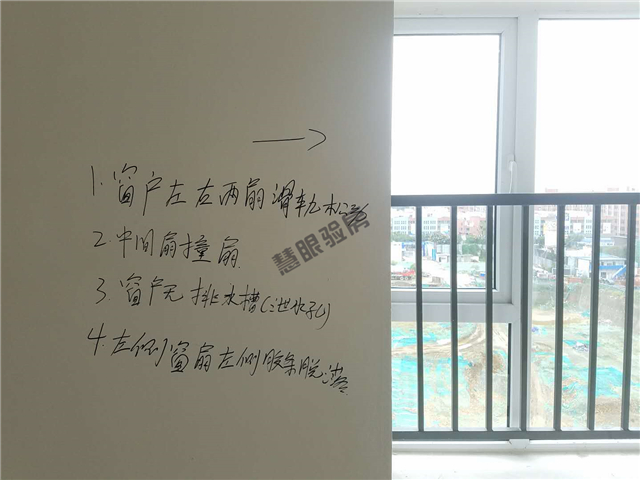 1. 窗户左右两扇滑轨松动
2. 中间扇撞扇
3. 窗户无排水槽(泄水孔)
4. 左侧窗扇左侧胶条脱落
慧眼验房